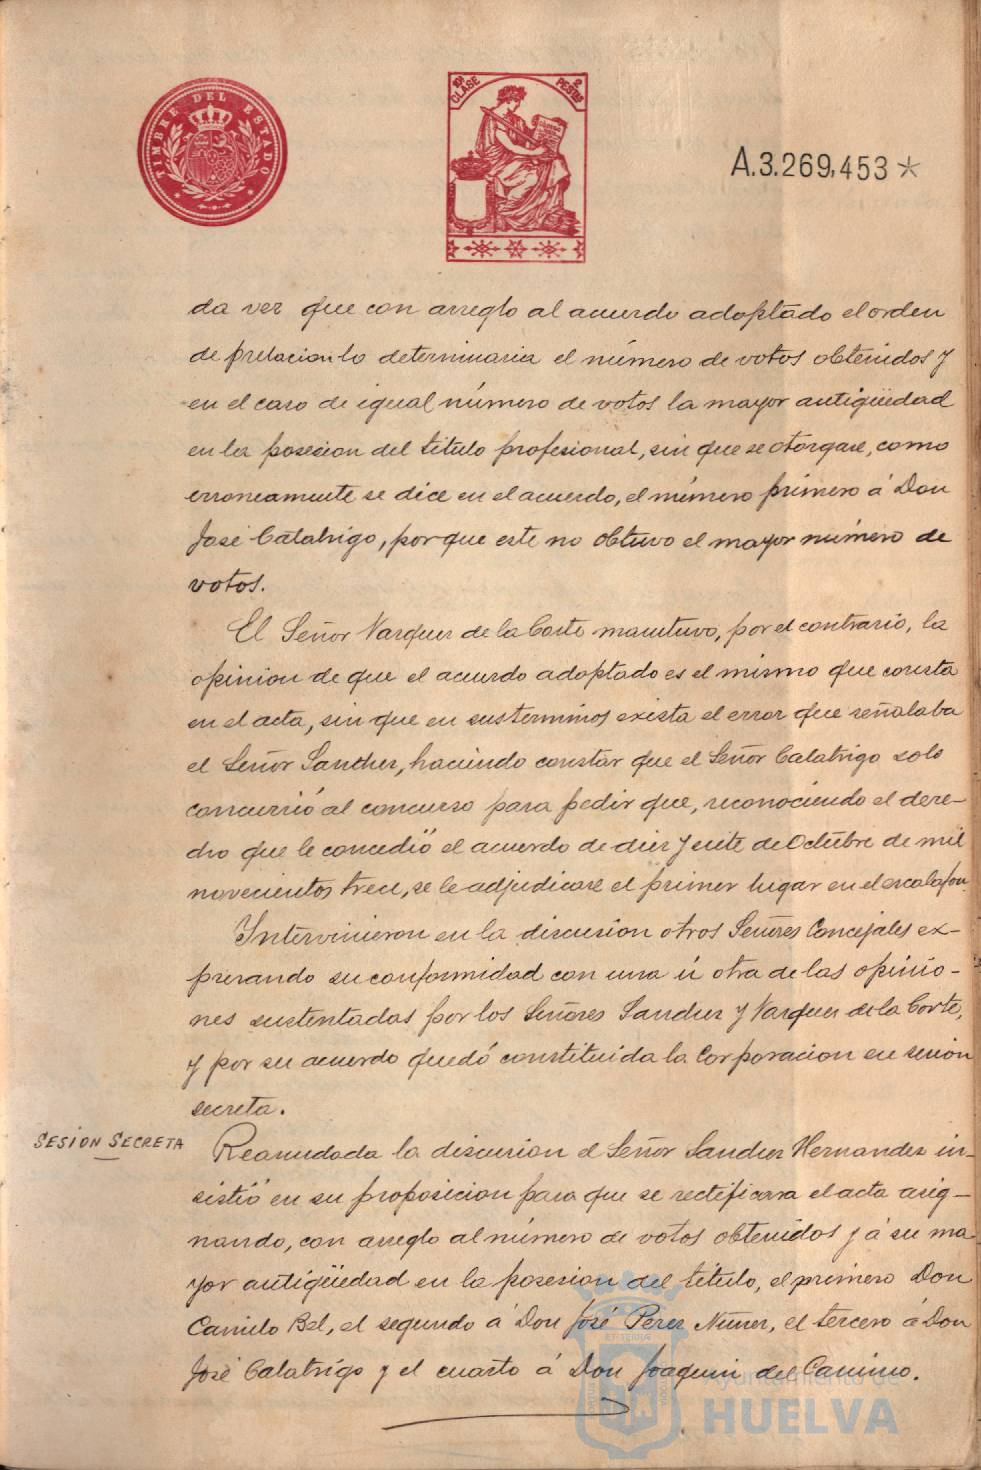 TIMBRE DEL ESTADO
10ª CLASE
2 PESETAS
A.3.269,453 *
da vez que con arreglo al acuerdo adoptado el orden
de prelacion lo determinaria el número de votos obtenidos y
en el caso de igual número de votos la mayor antigüedad
en la posesion del titulo profesional, sin que se otorgase, como
erroneamente se dice en el acuerdo, el número primero á Don
José Calatrigo, porque este no obtuvo el mayor número de
votos.
El Señor Vazquez de la Corte mantuvo, por el contrario, la
opinion de que el acuerdo adoptado es el mismo que consta
en el acta, sin que en sus terminos exista el error que señalaba
el Señor Sanchez, haciendo constar que el Señor Calatrigo solo
concurrió al concurso para pedir que, reconociendo el dere-
cho que le concedió el acuerdo de diez y siete de Octubre de mil
novecientos trece, se le adjudicase el primer lugar en el escalafon.
Intervinieron en la discusion otros Señores Concejales ex-
presando su conformidad con una ú otra de las opinio-
nes sustentadas por los Señores Sanchez y Vazquez de la Corte,
y por su acuerdo quedó constituida la Corporacion en sesion
secreta.
SESION SECRETA
Reanudada la discusion el Señor Sanchez Hernandez in-
sistió en su proposicion para que se rectificara el acta asig-
nando, con arreglo al número de votos obtenidos y á su ma
yor antigüedad en la posesion del titulo, el primero Don
Camilo Bel, el segundo á Don José Perez Nuñez, el tercero á Don
José Calatrigo y el cuarto á Don Joaquin del Camino.
Ayuntamiento de
HUELVA